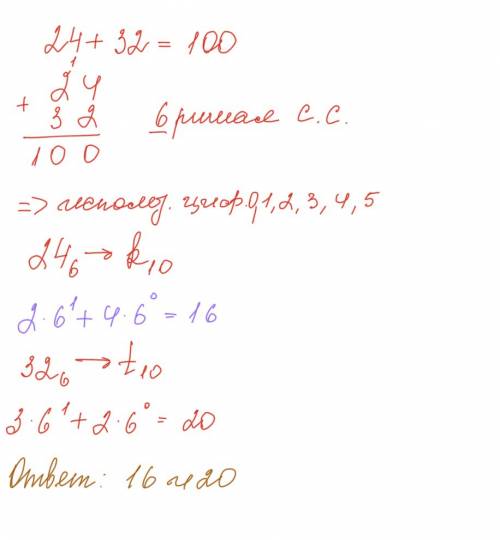 24 + 32 = 100
1
+ 24
32
100
6 ричная С.С.
=> использ. цифр 0,1,2,3,4,5
24₆ → k₁₀
2·6¹ + 4·6⁰ = 16
32₆ → t₁₀
3·6¹ + 2·6⁰ = 20
Ответ: 16 и 20